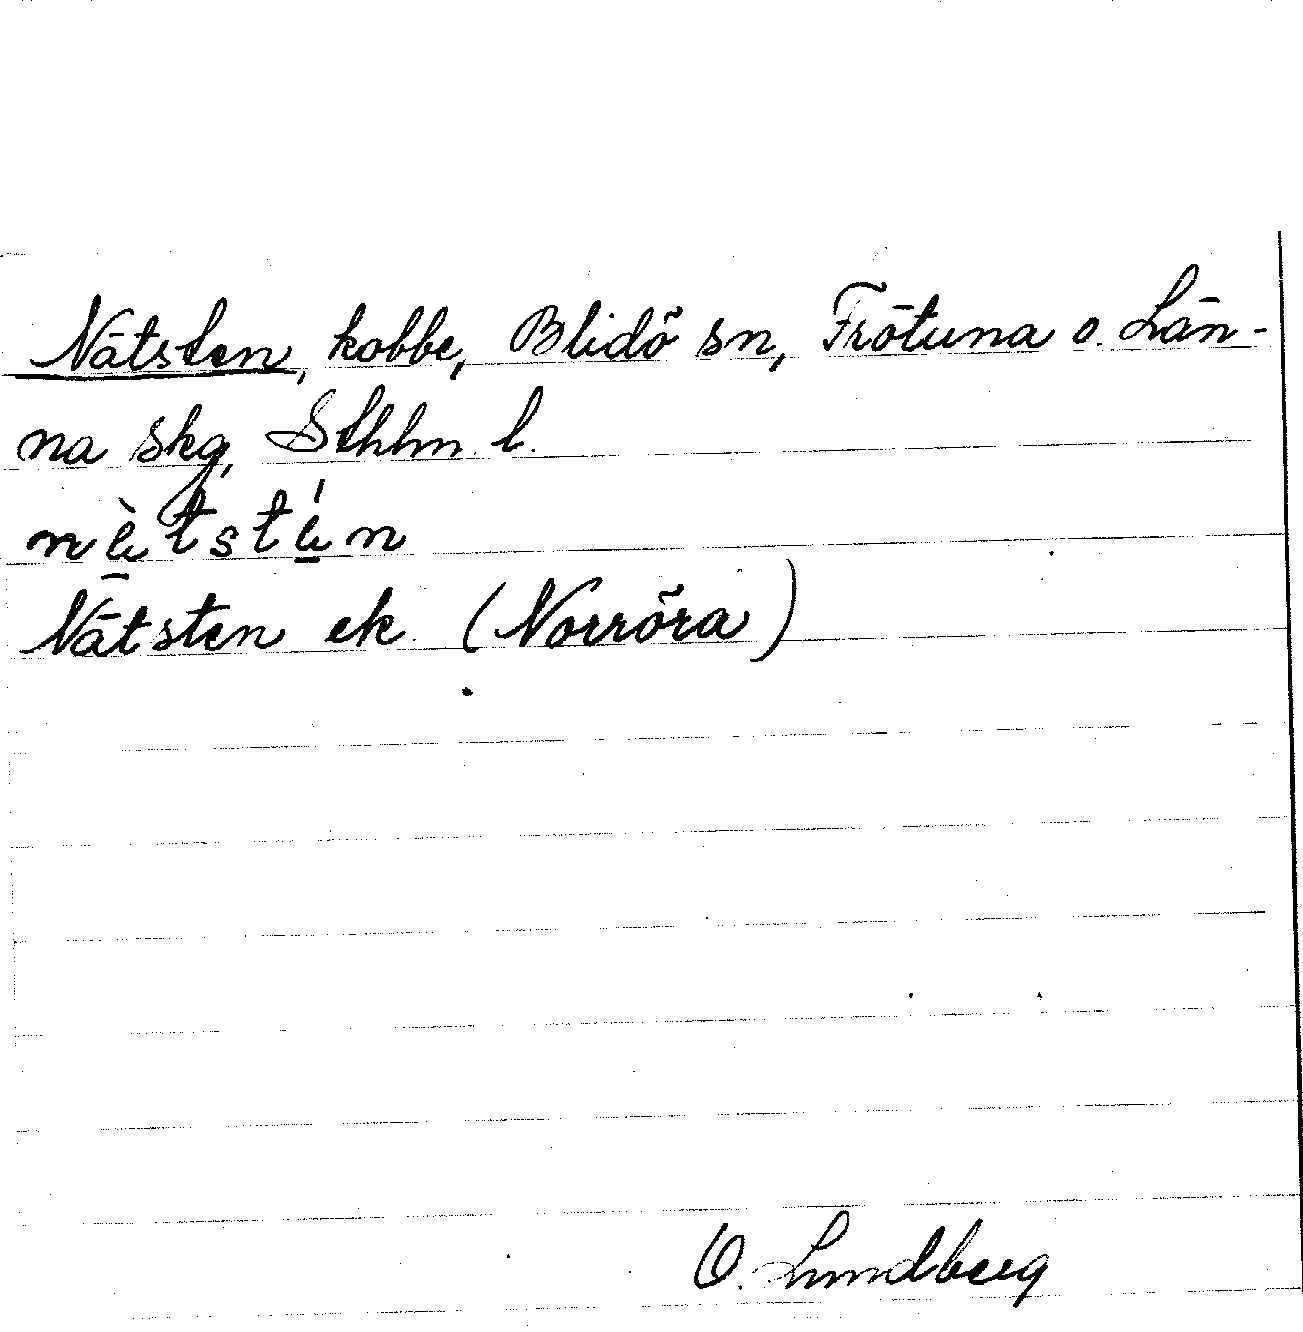 Nätsten, kobbe, Blidö sn, Frötuna o. Län-
na skg, Sthlm l.
Nätsten ek (Norröra)
O. Lundberg